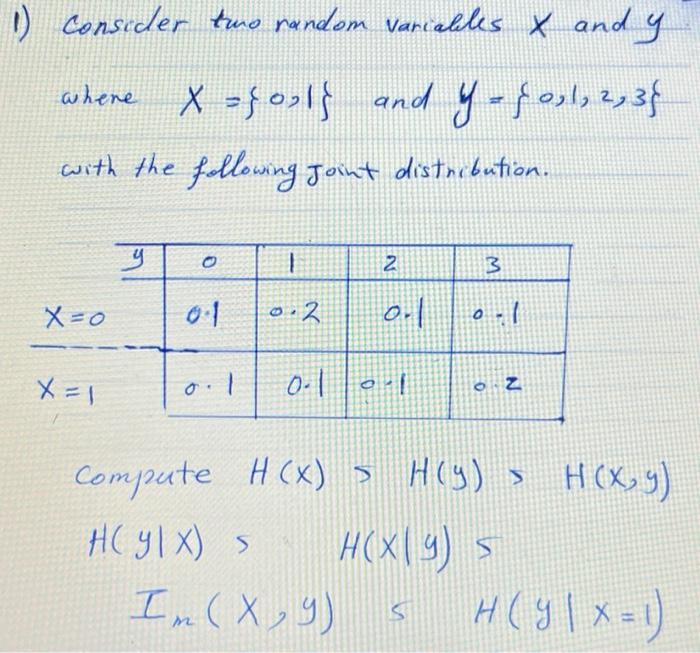 1) Consider two random variables X and y
where X = {0,1} and y = {0,1,2,3}
with the following Joint distribution.
y 0 1 2 3
X=0 0.1 0.2 0.1 0.1
X=1 0.1 0.1 0.1 0.2
Compute H(X) , H(y) , H(X,y)
H(y|X) , H(X|y) ,
Im(X,y) , H(y|X=1)